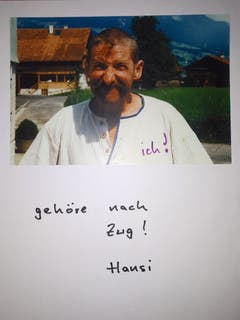 ich!
gehöre nach
Zug!
Hansi